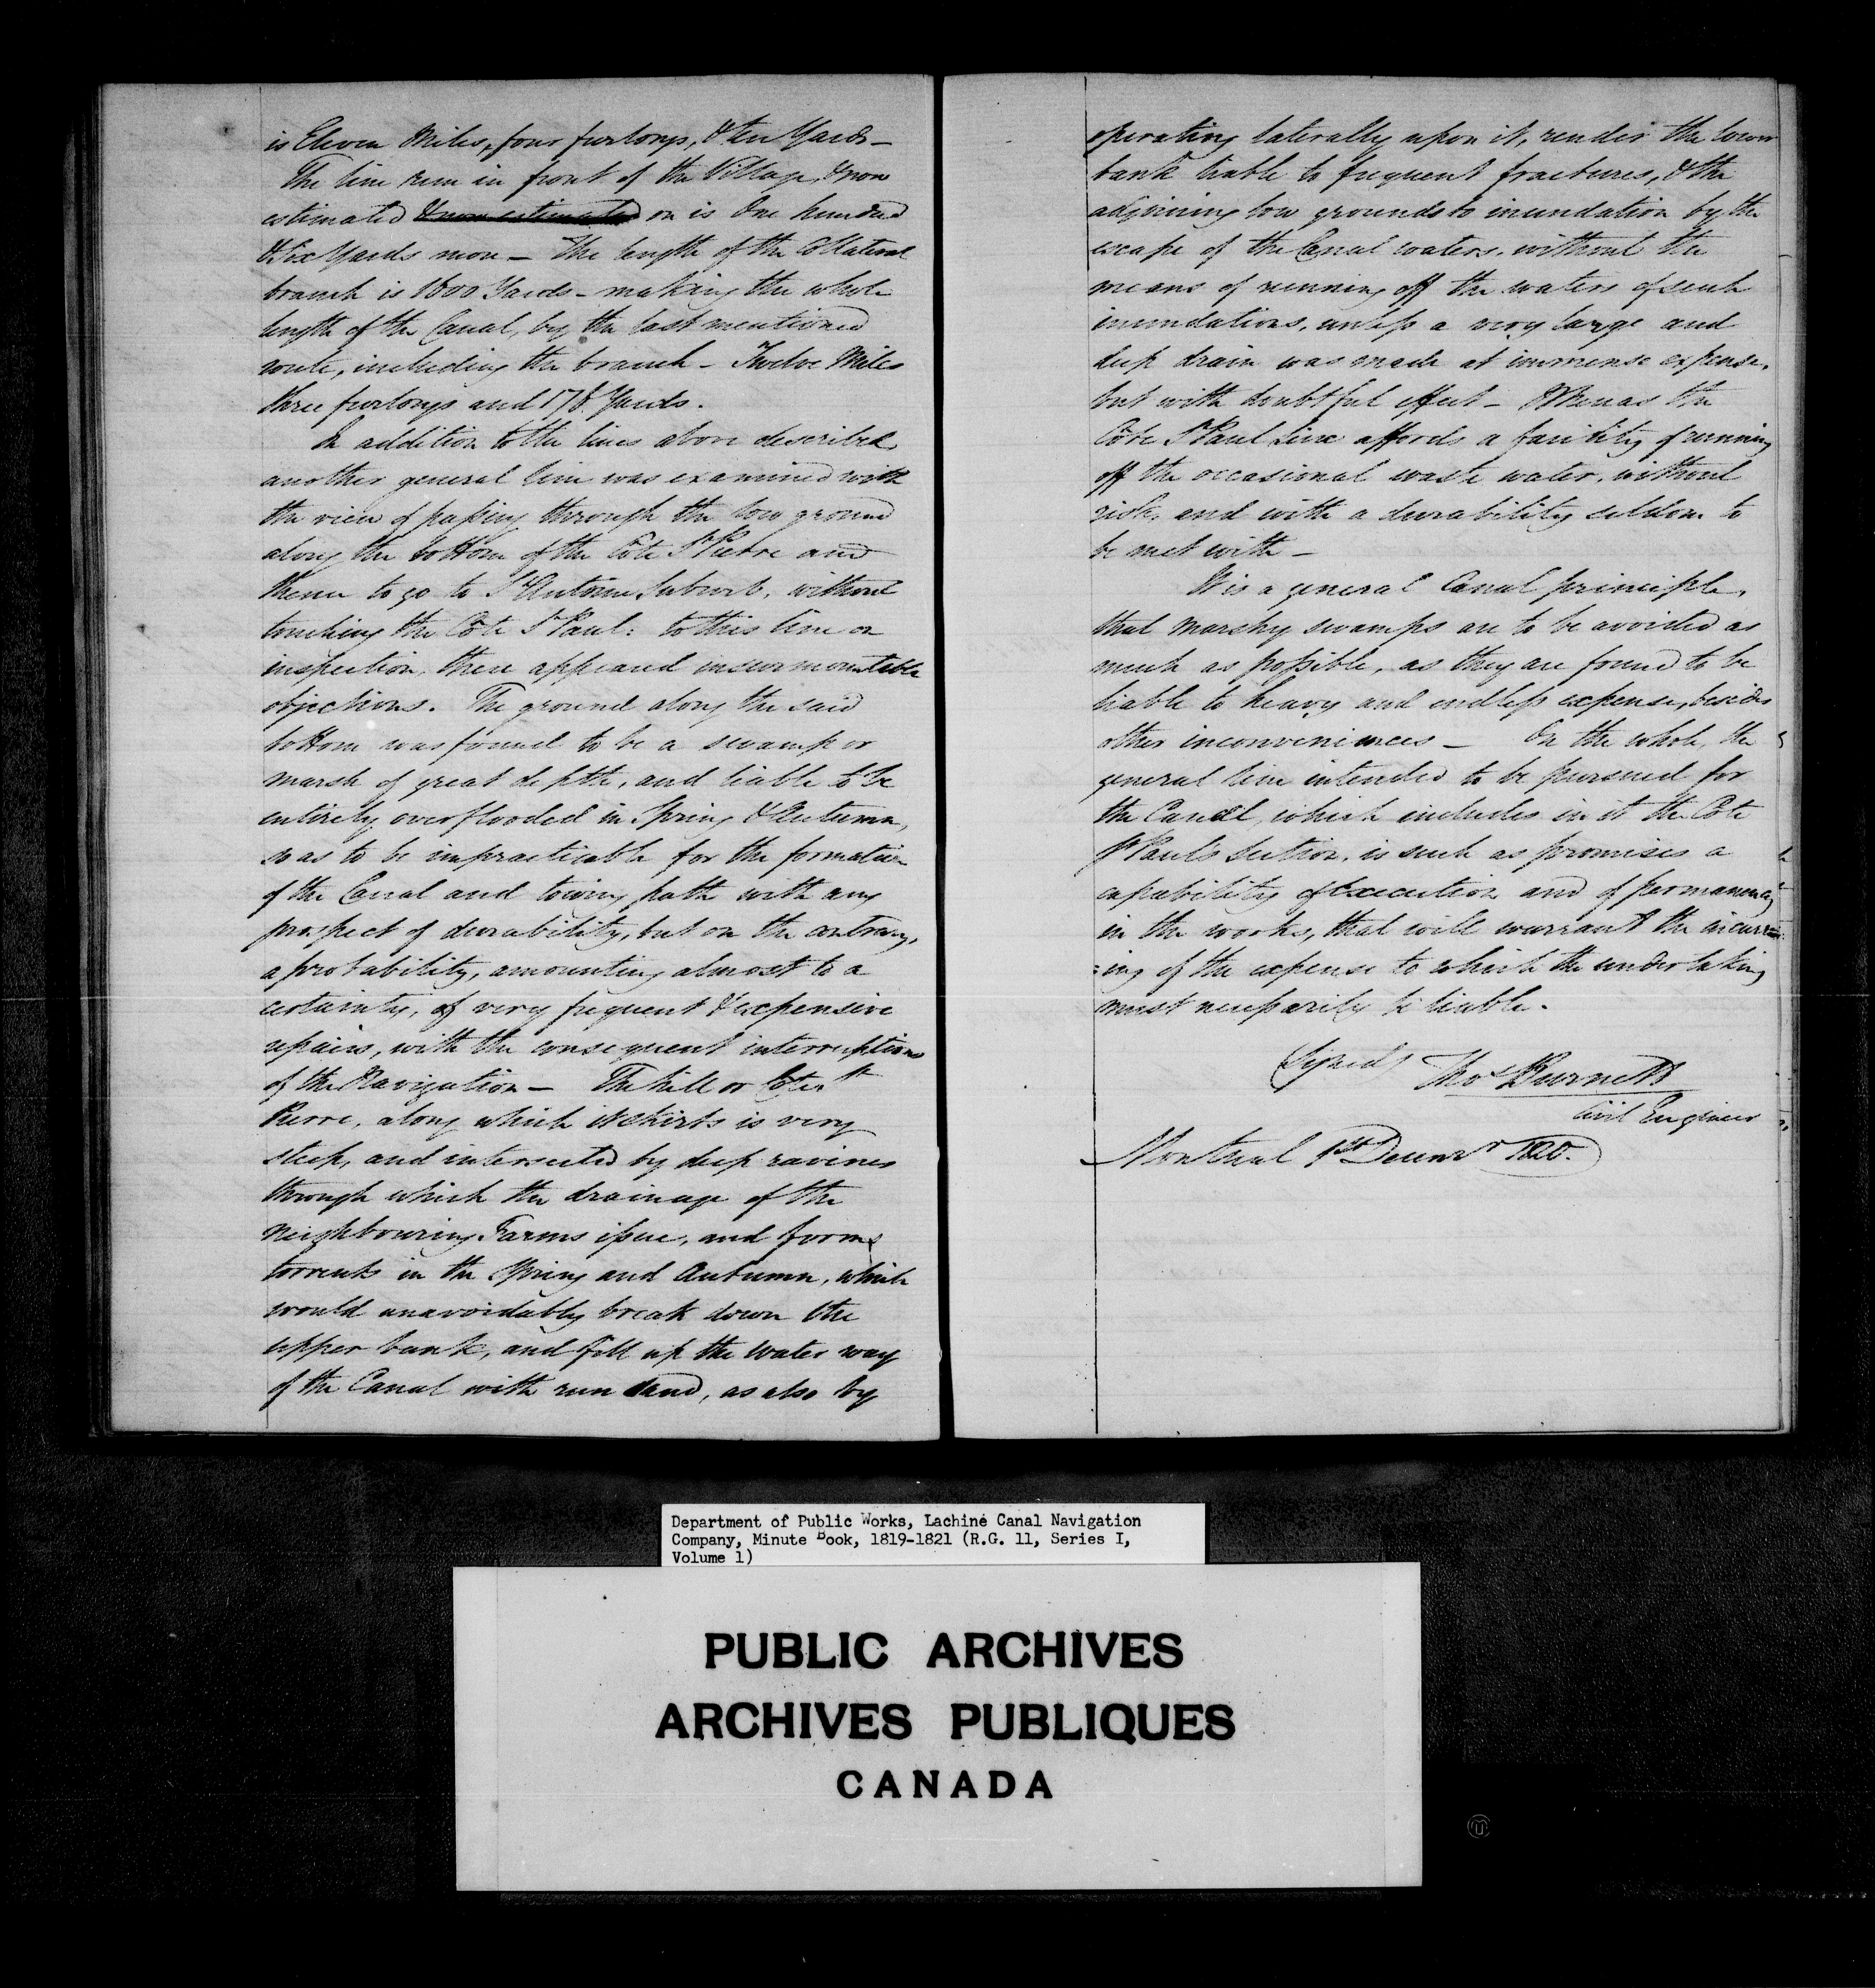 is Eleven Miles, four furlongs, & ten Yards –
The line run in front of the Village, & now
estimated & now estimated on is One hundred
& Six Yards more – The length of the Collateral
branch is 1500 Yards – making the whole
length of the Canal, by the last mentioned
route, including the branch – Twelve Miles
three furlongs and 178 Yards.
In addition to the lines above described,
another general line was examined with
the view of passing through the low ground
along the bottom of the Côte St Pierre and
thence to go to St Antoine Suburb, without
touching the Côte St Paul: to this line on
inspection, there appeared insurmountable
objections. The ground along the said
bottom was found to be a swamp or
marsh of great depth, and liable to be
entirely overflooded in Spring & Autumn,
so as to be impracticable for the formation
of the Canal and towing path with any
prospect of durability, but on the contrary,
a probability, amounting almost to a
certainty, of very frequent & expensive
repairs, with the consequent interruptions
of the Navigation – The hill or Côte St
Pierre, along which it skirts is very
steep, and intersected by deep ravines
through which the drainage of the
neighbouring Farms issue, and forms
torrents in the Spring and Autumn, which
would unavoidably break down the
upper bank, and fill up the water way
of the Canal with run sand, as also by
operating laterally upon it, render the lower
bank liable to frequent fractures, & the
adjoining low grounds to inundation by the
escape of the Canal waters, without the
means of running off the waters of such
inundations, unless a very large and
deep drain was made at immense expense,
but with doubtful effect – Whereas the
Côte St Paul Line affords a facility of running
off the occasional waste water, without
risk, and with a durability seldom to
be met with –
It is a general Canal principle,
that marshy swamps are to be avoided as
much as possible, as they are found to be
liable to heavy and endless expense, besides
other inconveniences – On the whole, the
general line intended to be pursued for
the Canal, which includes in it the Côte
St Paul's Section, is such as promises a
capability of Execution and of permanency
in the works, that will warrant the incurr-
=ing of the expense to which the undertaking
must necessarily be liable.
(Signed) Thos Burnett
Civil Engineer
Montreal 1st Decemr 1820.
Department of Public Works, Lachine Canal Navigation
Company, Minute Book, 1819-1821 (R.G. 11, Series I,
Volume 1)
PUBLIC ARCHIVES
ARCHIVES PUBLIQUES
CANADA